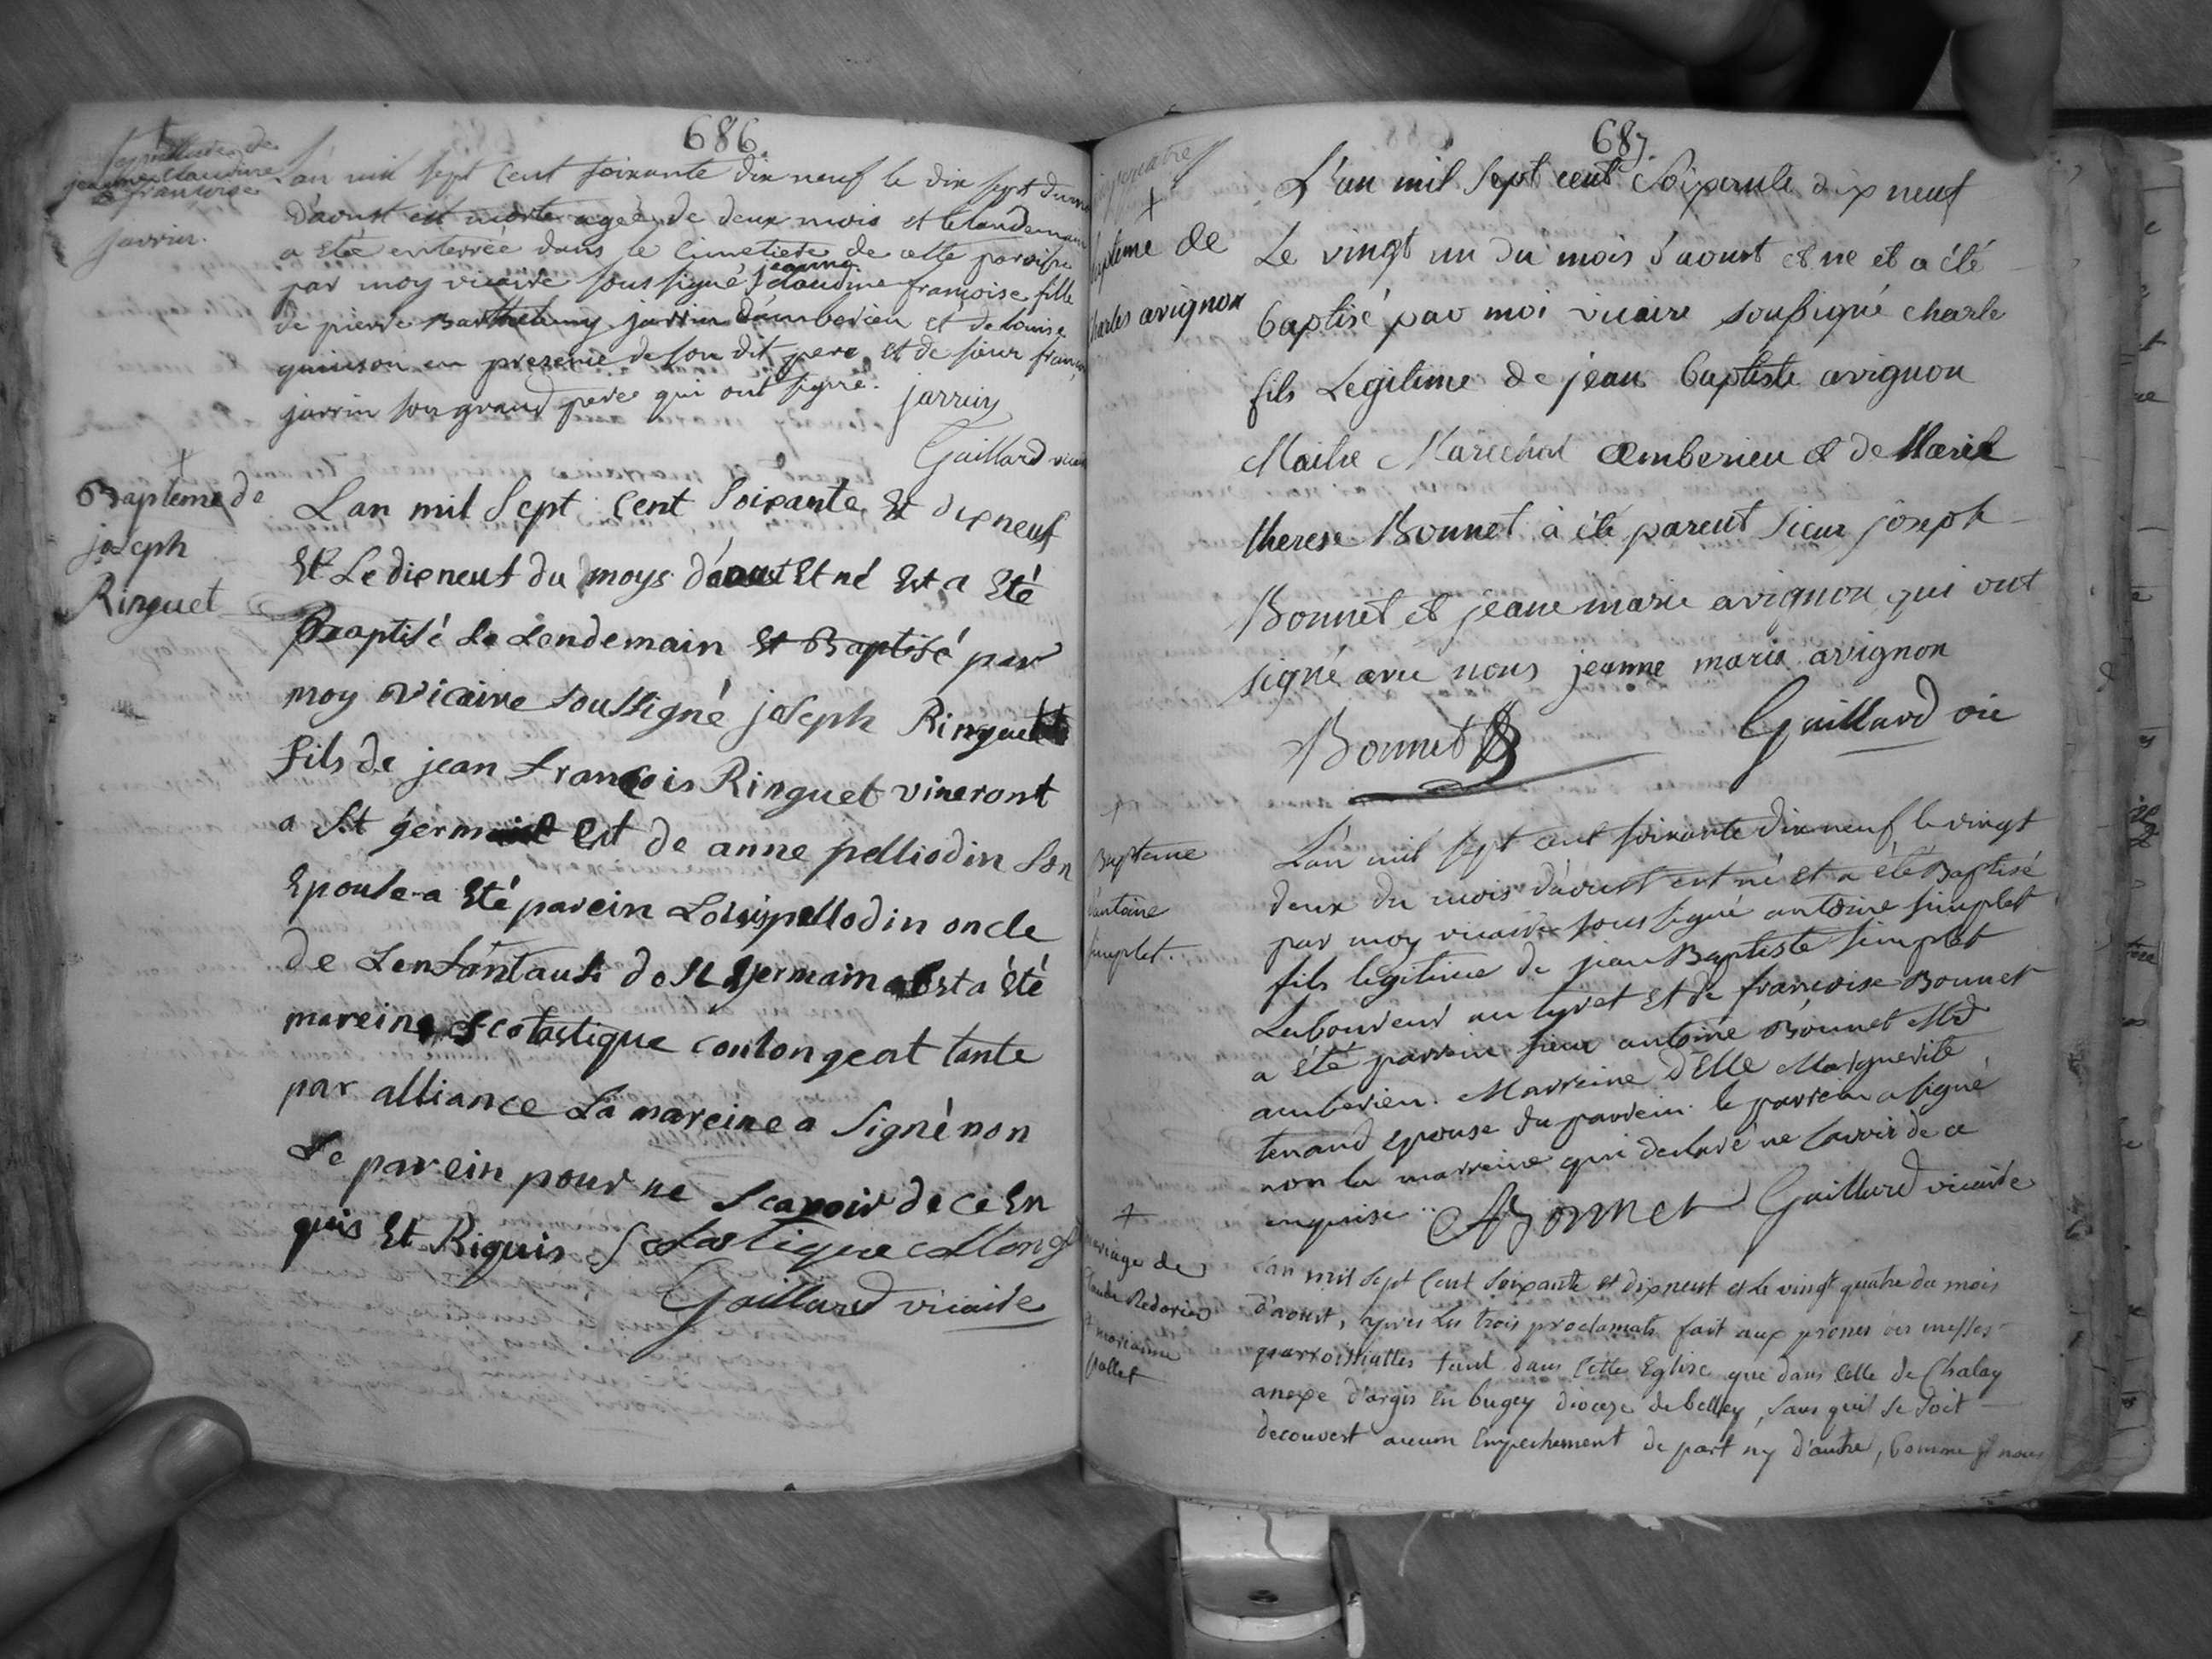 686
sepulture de
jeanne Claudine
francoise
jarrin.
L'an mil sept Cent soixante dix neuf le dix sept du mois
d'aoust est morte agée de deux mois et le landemain
a eté enterrée dans le Cimetiere de cette paroisse
par moy vicaire soussigné jeanne claudine francoise fille
de pierre Barthelemy jarrin d'amberieu et de louise
guinson en presence de son dit pere et de sieur francois
jarrin son grand pere qui ont signé. jarrin
Gaillard vicaire
Bapteme de
joseph
Ringuet
Lan mil Sept Cent Soixante Et dixneuf
Et Le dixneuf du moys d'aoust Et né Est a Eté
Baptisé Le Lendemain Et Baptisé par
moy vicaire soussigné joseph Ringuet
fils de jean francois Ringuet vineront
a St germain Est de anne pelliodin Son
Epouse a Eté parein Louis pellodin oncle
de Lenfant ausi de St germain Est a Eté
mareine Scolastique Coulongeat tante
par alliance La mareine a Signé non
Le parein pour ne Scavoir de ce En
quis Et Riquis Scolastique Collonge
Gaillard vicaire
687
+
Bapteme de
Charles avignon
L'an mil Sept cent Soixante dix neuf
Le vingt un du mois d'aoust et né et a été
baptisé par moi vicaire soussigné charle
fils Legitime de jean baptiste avignon
Maitre Marechal amberieu et de Marie
therese Bonnet à été parent Sieur joseph
Bonnet et jeane marie avignon qui ont
signé avec nous jeanne marie avignon
Bonnet Gaillard vic
+
Bapteme
d'antoine
simplet.
L'an mil sept cent soixante dix neuf le vingt
deux du mois d'aoust est né et a été Baptisé
par moy vicaire soussigné antoine simplet
fils legitime de jean Baptiste simplet
Laboureur au tyret et de francoise Bonnet
a été parrein sieur antoine Bonnet Md
amberieu. Marreine delle Marguerite
tenand epouse du parrein. le parrein a signé
non la marreine qui declaré ne savoir de ce
enquise.. ABonnet Gaillard vicaire
+
mariage de
Claude Redorier
et marianne
pollet
L'an mil Sept Cent Soixante et dixneuf et le vingt quatre du mois
d'aoust, apres les trois proclamats fait aux prones des messes
parroissialles tant dans Cette Eglise que dans Celle de Chalay
anexe d'argis En bugey dioceze de belley, Sans quil Se Soit
decouvert aucun Empechement de part ny d'autre, Comme il nous